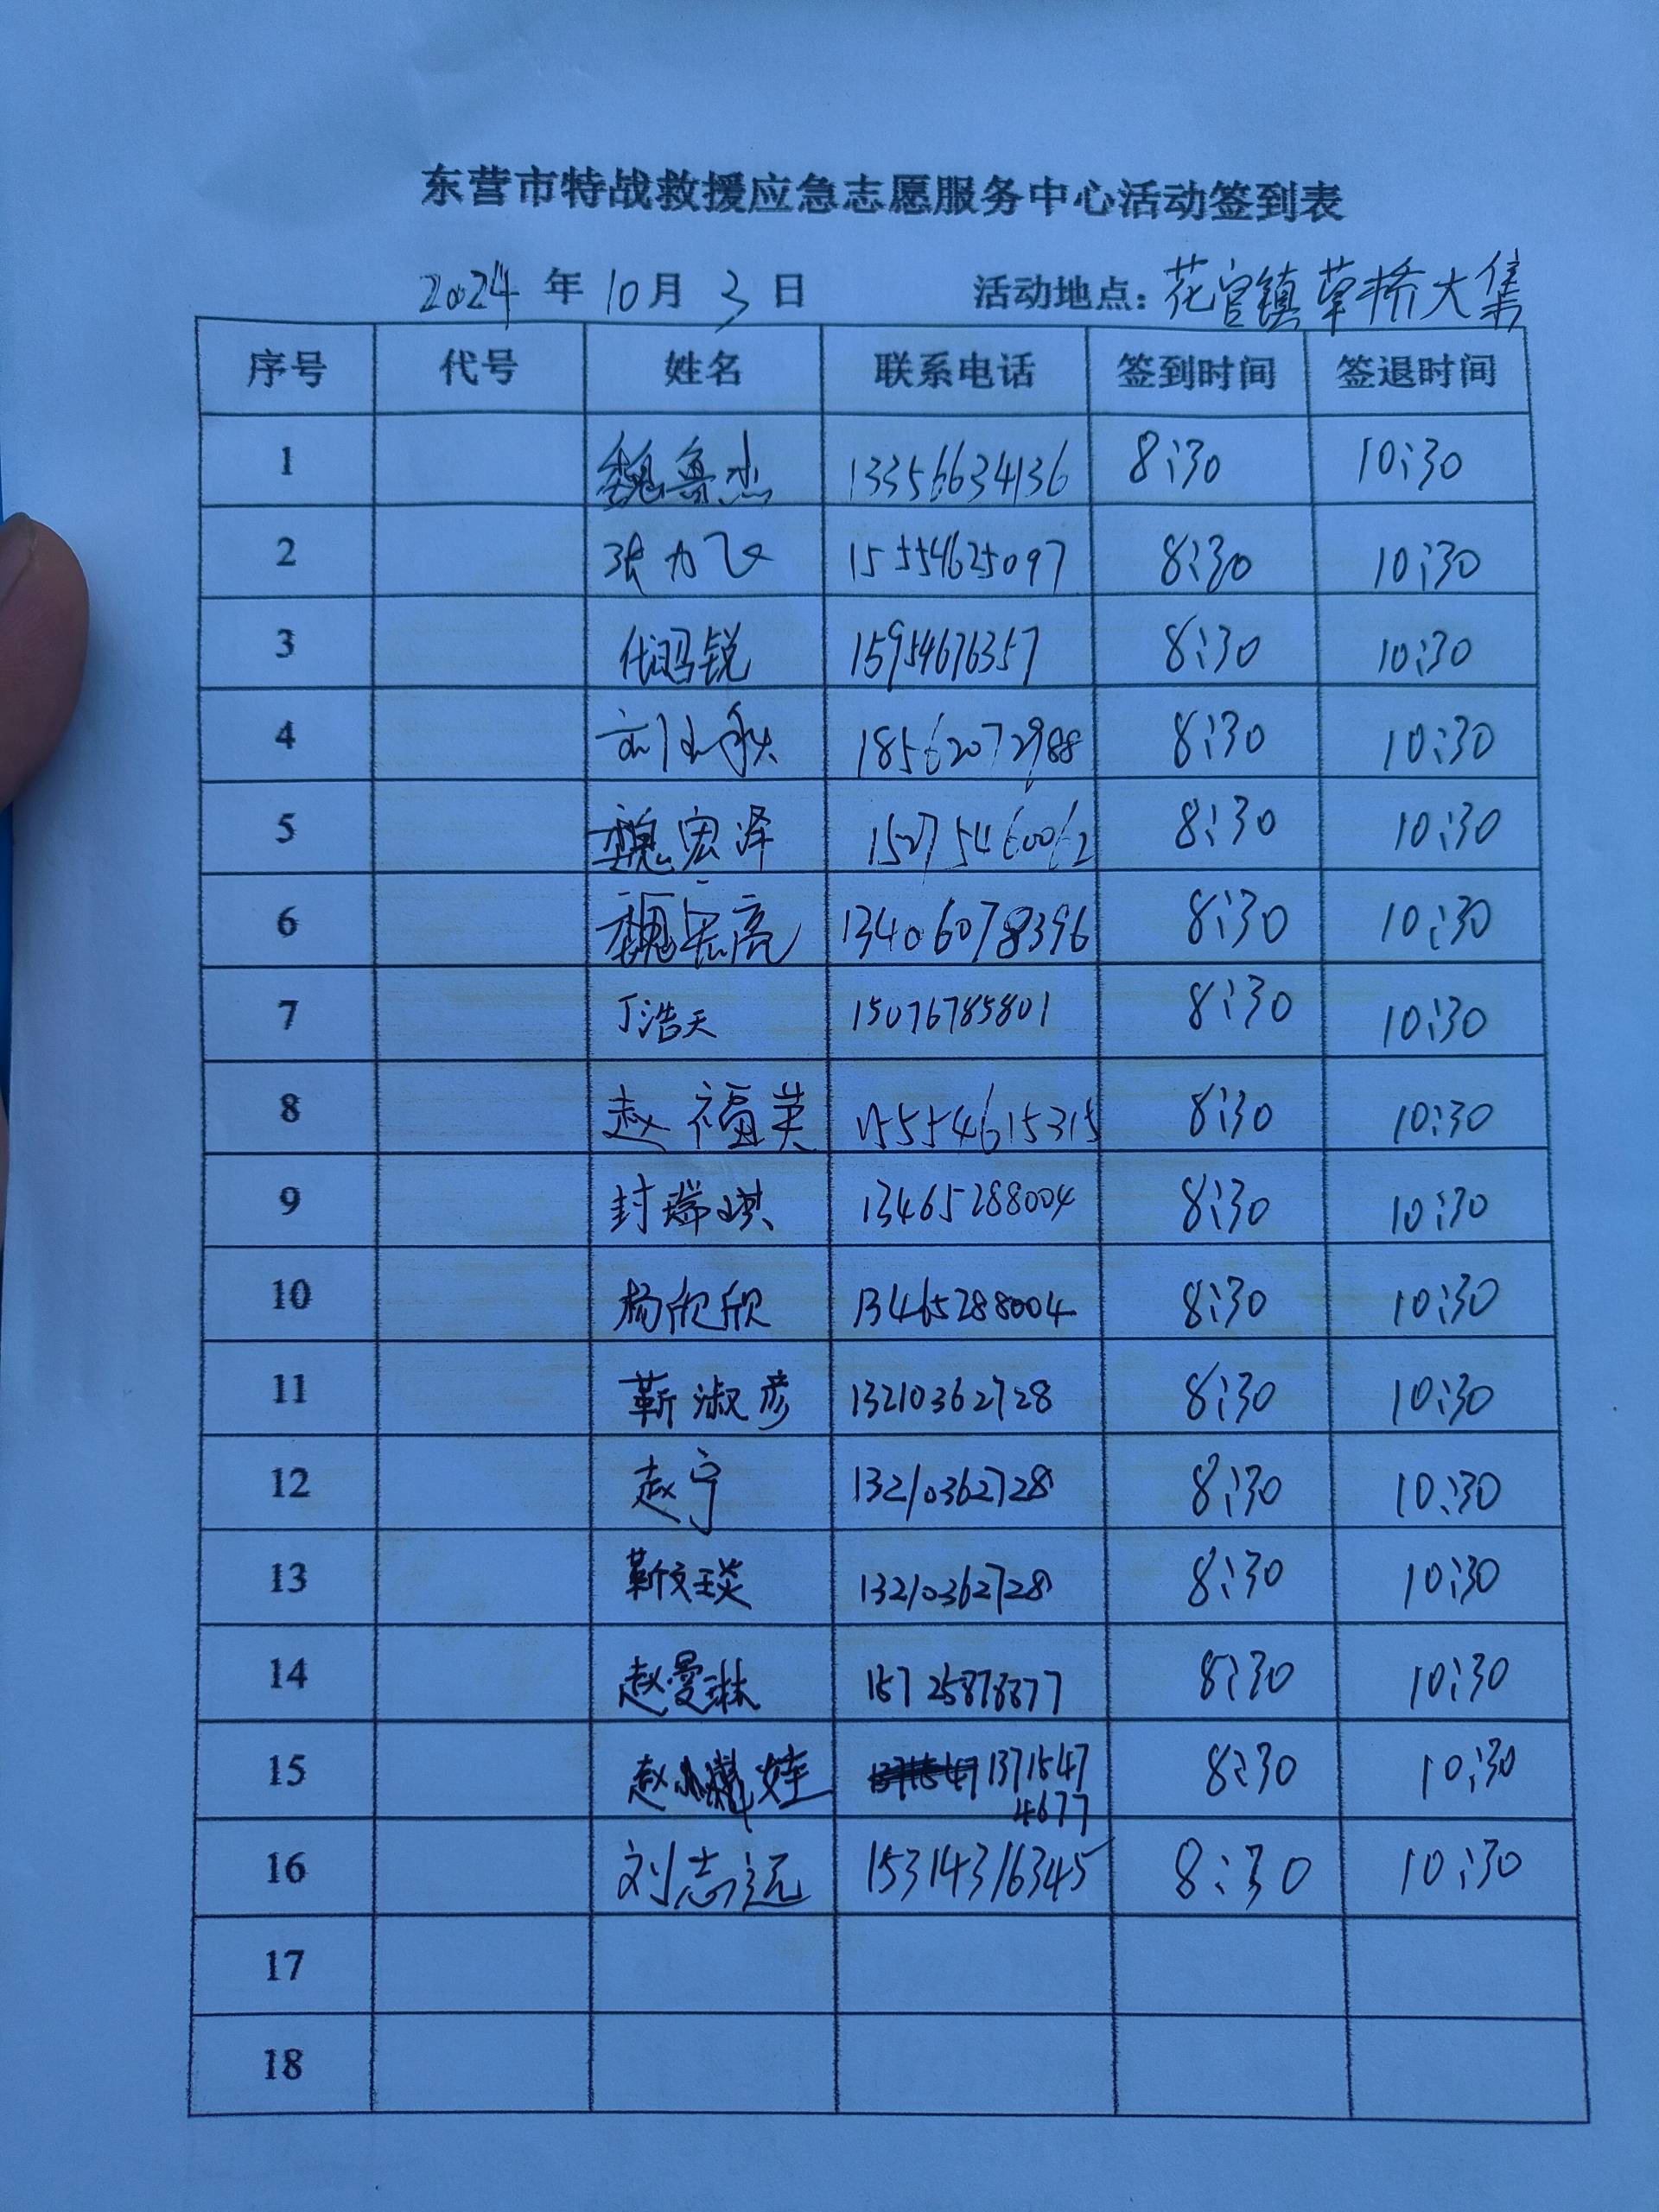 东营市特战救援应急志愿服务中心活动签到表
2024 年 10 月 3 日 活动地点: 花官镇草桥大集
序号 代号 姓名 联系电话 签到时间 签退时间
1 魏鲁杰 13356634136 8:30 10:30
2 张力飞 15554625097 8:30 10:30
3 代玛锐 15954676357 8:30 10:30
4 18562072988 8:30 10:30
5 魏宏泽 15275460062 8:30 10:30
6 魏宏亮 13406078396 8:30 10:30
7 丁浩天 15076785801 8:30 10:30
8 赵福英 15554615315 8:30 10:30
9 封瑞琪 13465288004 8:30 10:30
10 杨欣欣 13465288004 8:30 10:30
11 靳淑彦 13210362728 8:30 10:30
12 赵宁 13210362728 8:30 10:30
13 靳文琰 13210362728 8:30 10:30
14 赵曼琳 15725878877 8:30 10:30
15 赵 13715474677 8:30 10:30
16 刘志远 15314316345 8:30 10:30
17
18